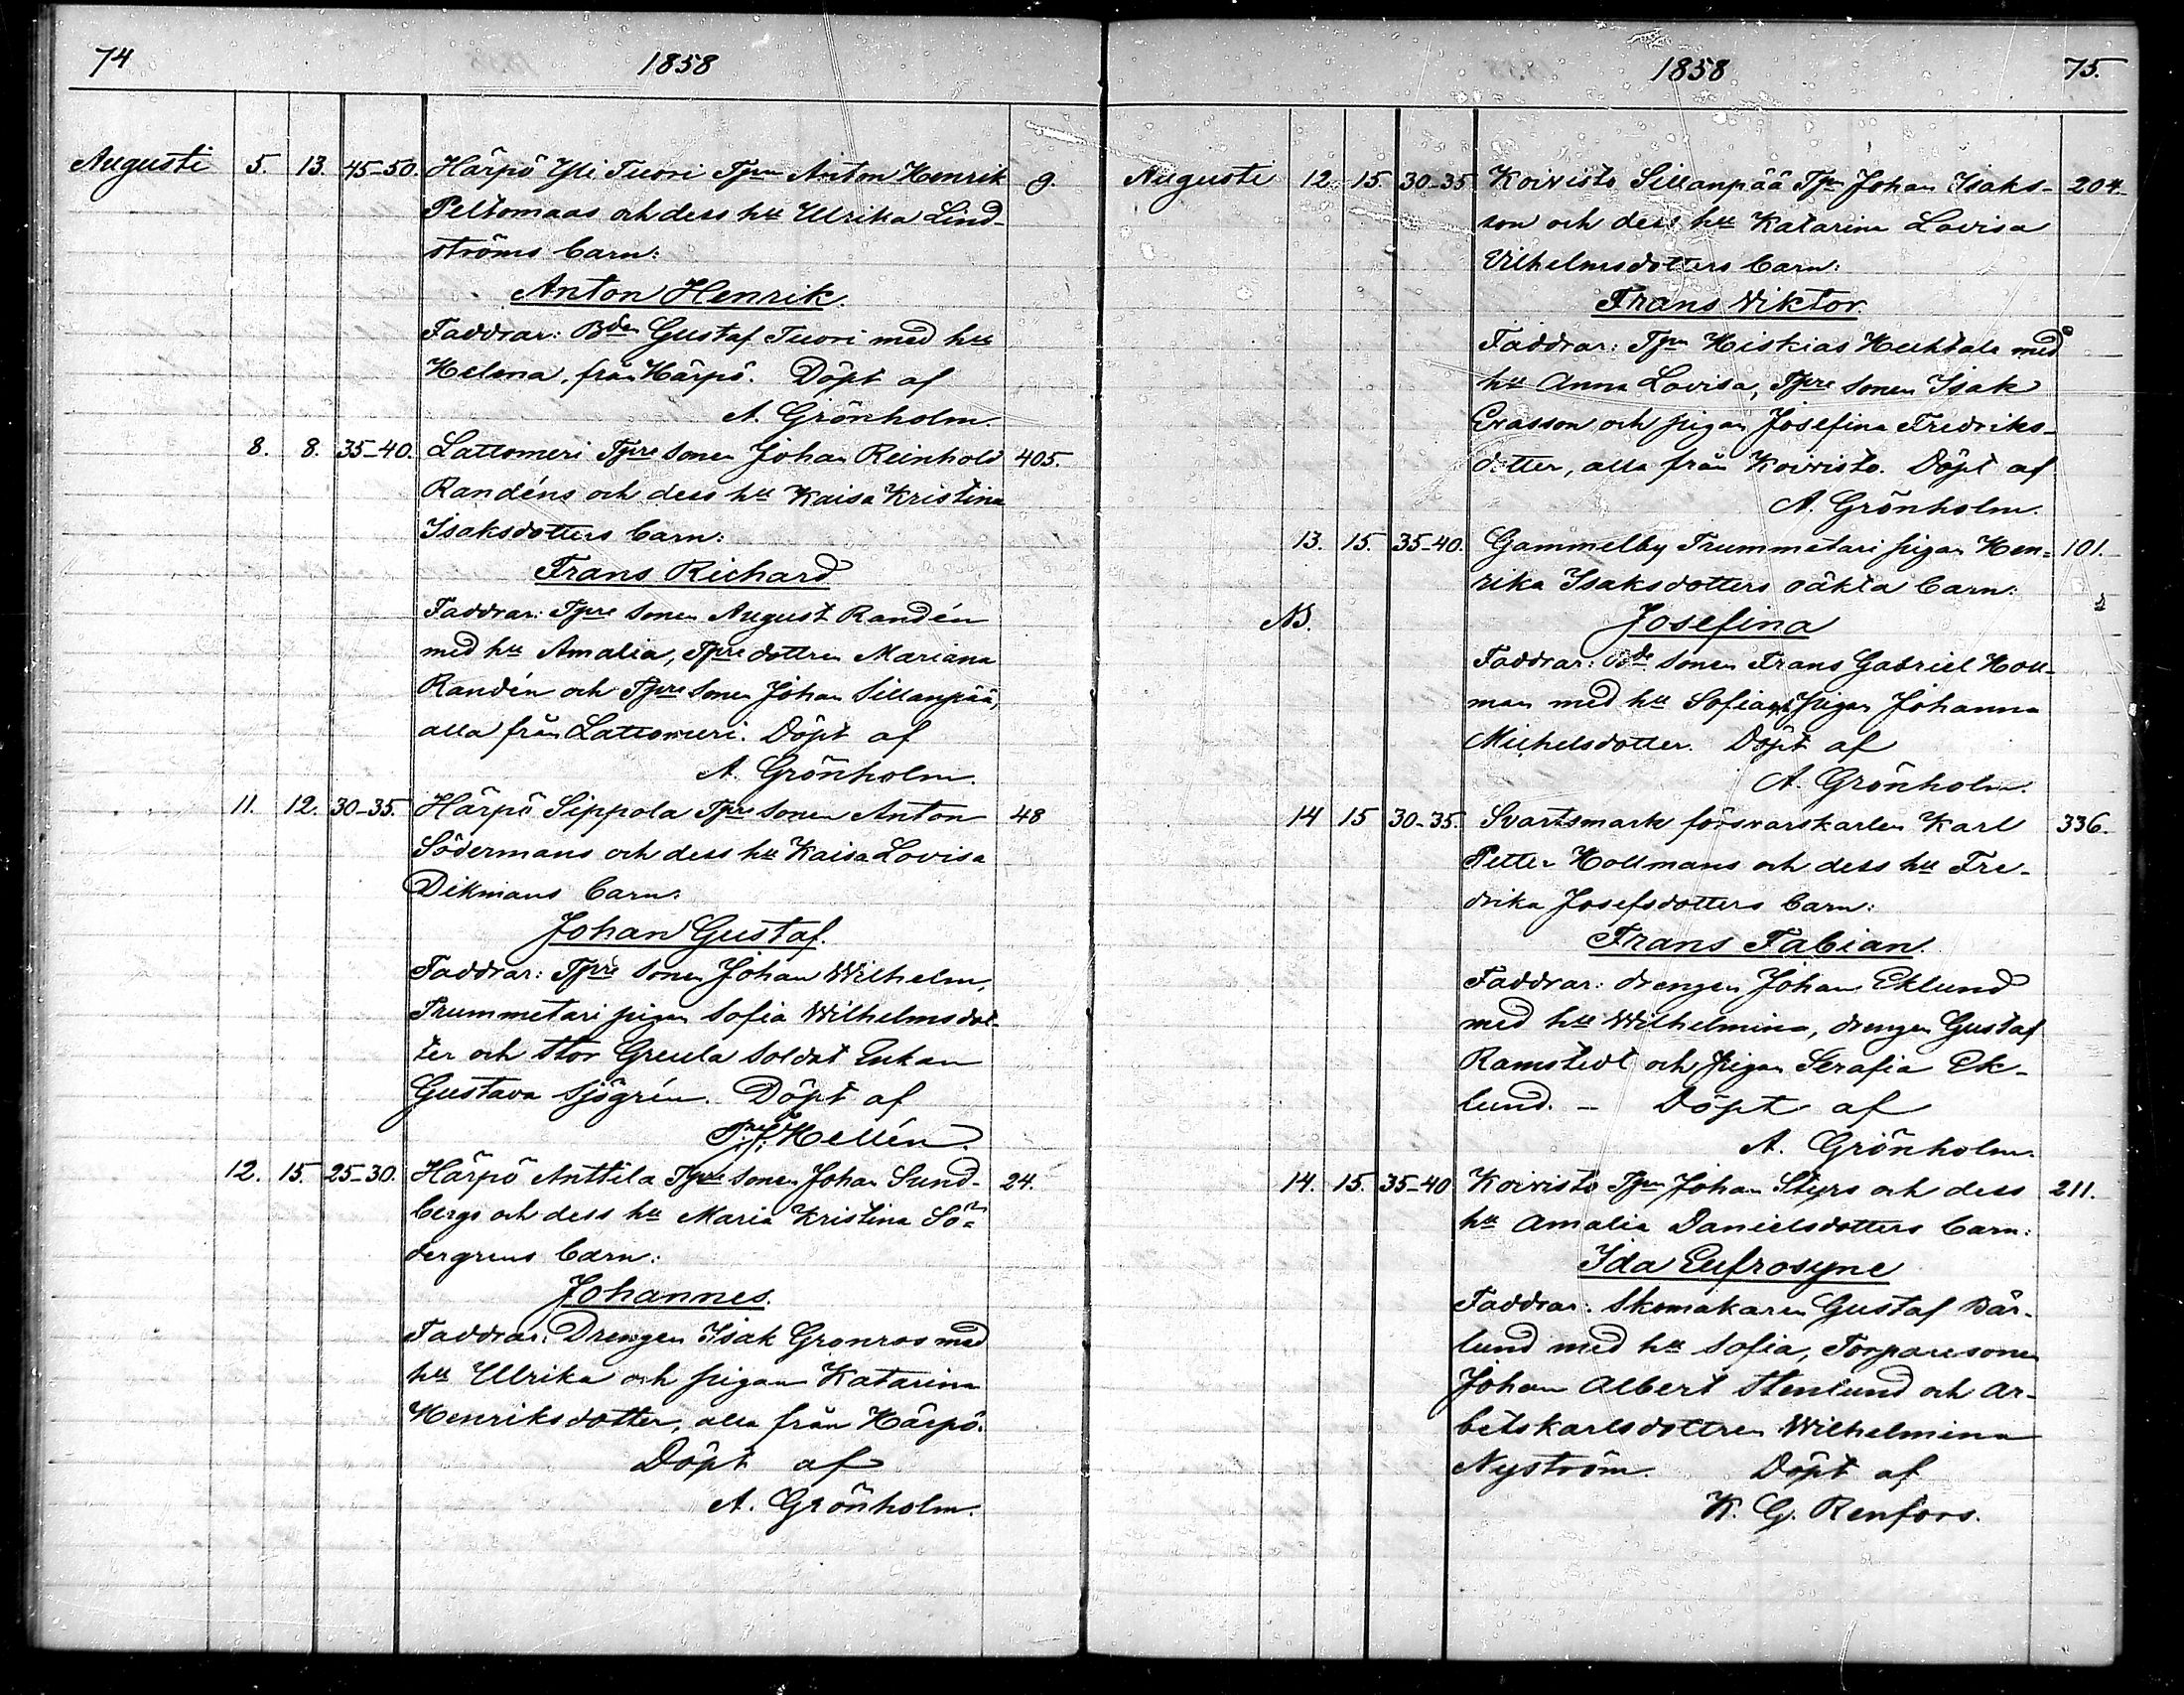 74
1858
Augusti 5. 13. 45-50. Härpö Yli Tuori Tpn Anton Henrik 9.
Peltomaas och dess hu Ulrika Lind-
ströms barn:
Anton Henrik.
Faddrar: Bden Gustaf Tuori med hu
Helena, från Härpö. Döpt af
A. Grönholm.
8. 8. 35-40. Lattomeri Tpre sonen Johan Reinhold 405.
Randéns och dess hu Kaisa Kristina
Isaksdotters barn:
Frans Richard
Faddrar: Tpre sonen August Randén
med hu Amalia, Tpre dottren Mariana
Randén och Tpre sonen Johan Sillanpää,
alla från Lattomeri. Döpt af
A. Grönholm.
11. 12. 30-35. Härpö Sippola Tpre sonen Anton 48
Södermans och dess hu Kaisa Lovisa
Dikmans barn:
Johan Gustaf.
Faddrar: Tpre sonen Johan Wilhelm,
Trummetari pigan Sofia Wilhelmsdot-
ter och Stor Greula soldat Enkan
Gustava Sjögrén. Döpt af
Hellén.
12. 15. 25-30. Härpö Anttila Tpre sonen Johan Sund- 24.
bergs och dess hu Maria Kristina Sö-
dergrens barn:
Johannes.
Faddrar: Drengen Isak Grönros med
hu Ulrika och pigan Katarina
Henriksdotter, alla från Härpö.
Döpt af
A. Grönholm.
1858
75.
Augusti 12 15. 30-35 Koivisto Sillanpää Tpn Johan Isaks- 204
son och dess hu Katarina Lovisa
Vilhelmsdotters barn:
Frans Viktor.
Faddrar: Tpn Hiskias Huhtala med
hu Anna Lovisa, Tpre sonen Isak
Erasson och pigan Josefina Fredriks-
dotter, alla från Koivisto. Döpt af
A. Grönholm.
13. 15. 35-40. Gammelby Trummetari pigan Hen- 101.
rika Isaksdotters oäkta barn:
Josefina
Faddrar: Bde sonen Frans Gabriel Holl-
man med hu Sofia och pigan Johanna
Michelsdotter. Döpt af
A. Grönholm.
14 15 30-35. Svartsmark försvarskarlen Karl 336.
Petter Hollmans och dess hu Fre-
drika Josefsdotters barn:
Frans Fabian.
Faddrar: drengen Johan Eklund
med hu Wilhelmina, drengen Gustaf
Ramstedt och pigan Serafia Ek-
lund. - Döpt af
A. Grönholm.
14. 15. 35-40 Koivisto Tpn Johan Styrs och dess 211.
hu Amalia Danielsdotters barn:
Ida Eufrosyne
Faddrar: Skomakaren Gustaf Wär-
lund med hu Sofia, Torparesonen
Johan Albert Stenlund och ar-
betskarlsdottren Wilhelmina
Nyström. Döpt af
K. G. Renfors.